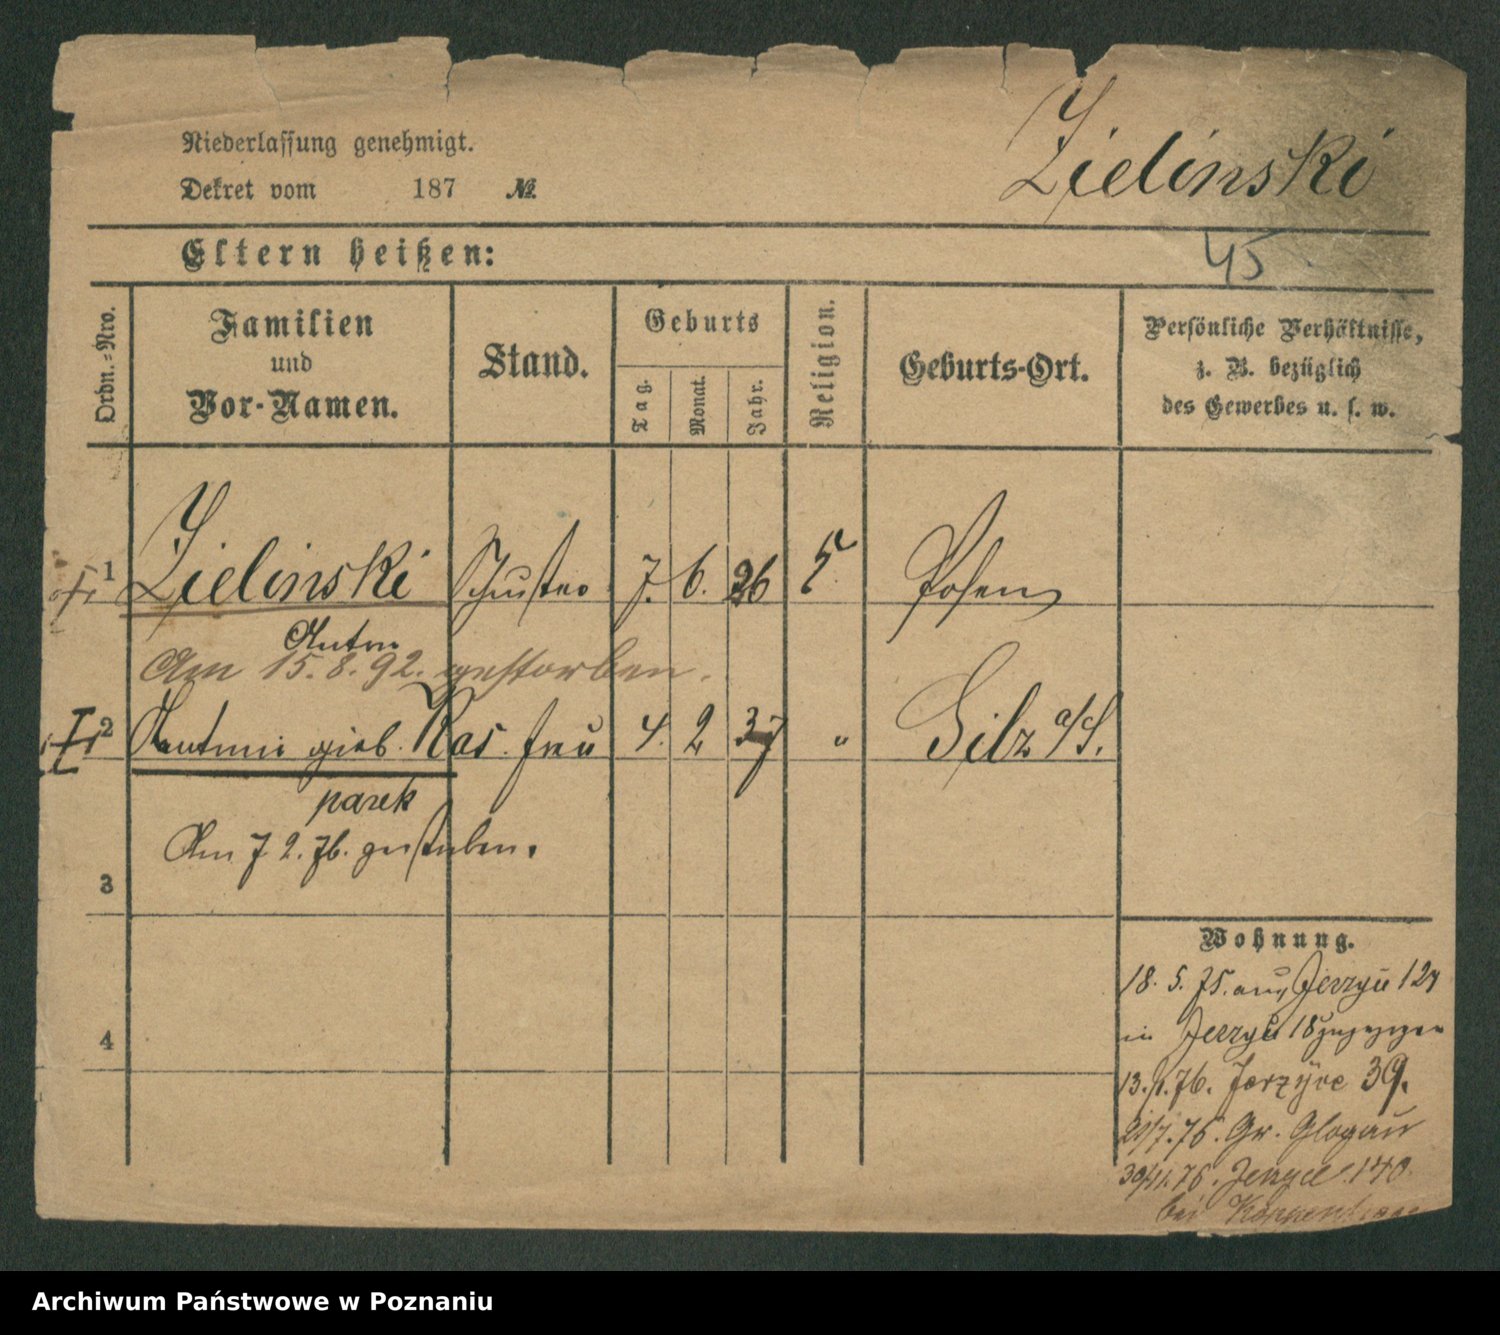 Niederlassung genehmigt.
Zielinski
Dekret vom 187 №
Eltern heißen:
45
Ordn.=Nro.
Familien
und
Vor-Namen.
Stand.
Geburts
Tag.
Monat.
Jahr.
Religion.
Geburts-Ort.
Persönliche Verhältnisse,
z. B. bezüglich
des Gewerbes u. s. w.
1 Zielinski Schuster 7. 6. 26 Posen
Anton
Am 15. 8. 92. gestorben.
2 geb. Kas- frau 4. 2 37 " Gilz a/S.
parek
Am 7 2. 76. gestorben.
3
4
Wohnung.
18. 5. 75. aus Jerzyce 127
in Jerzyce 18 zugezogen
13. 76. Jerzyce 39.
7. 76. Gr. Glogau
30/11. 76. Jerzyce 140
bei
Archiwum Państwowe w Poznaniu